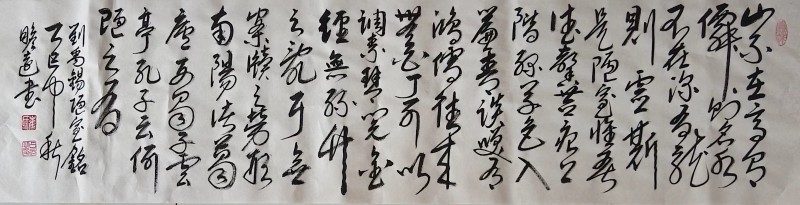 山不在高有
僊則名水
不在深有龍
則靈斯
是陋室惟吾
德馨苔痕上
階綠草色入
簾青談笑有
鴻儒往來
無白丁可以
調素琴閱金
經無絲竹
之亂耳無
案牘之勞形
南陽諸葛
廬西蜀子雲
亭孔子云何
陋之有
劉禹錫陋室銘
巳中秋
書